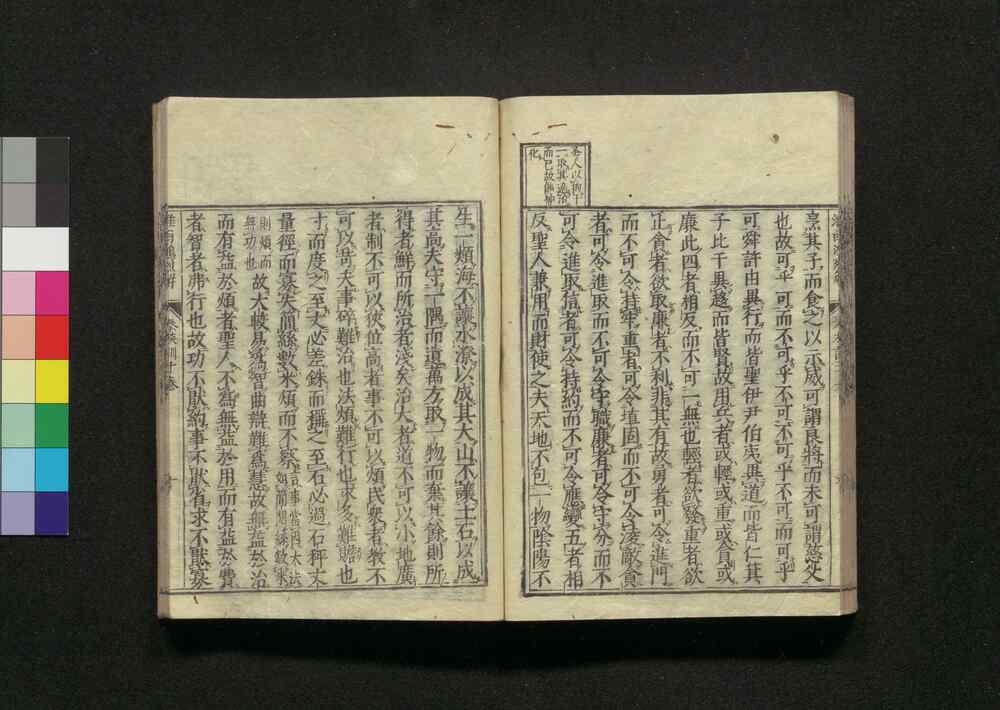 烹其子而食之以示威可謂良將而未可謂慈父
也故可乎可而不可乎不可不可乎不可而可乎
可舜許由異行而皆聖伊尹伯夷異道而皆仁箕
子比干異趨而皆賢故用兵者或輕或重或貪或
廉此四者相反而不可一無也輕者欲發重者欲
止貪者欲取廉者不利非其有故勇者可令進鬥
而不可令持牢重者可令埴固而不可令凌敵貪
者可令進取而不可令守職廉者可令守分而不
可令進取信者可令持約而不可令應變五者相
反聖人兼用而財使之夫天地不包一物陰陽不
化
生一類海不讓水潦以成其大山不讓土石以成
其高夫守一隅而遺萬方取一物而棄其餘則所
得者鮮而所治者淺矣治大者道不可以小地廣
者制不可以狹位高者事不可以煩民衆者教不
可以苛夫事碎難治也法煩難行也求多難贍也
寸而度之至丈必差銖而稱之至石必過石秤丈
量徑而寡失簡絲數米煩而不察
則煩而
無功也
故大較易爲智曲辯難爲慧故無益於治
而有益於煩者聖人不爲無益於用而有益於費
者智者弗行也故功不厭約事不厭省求不厭寡